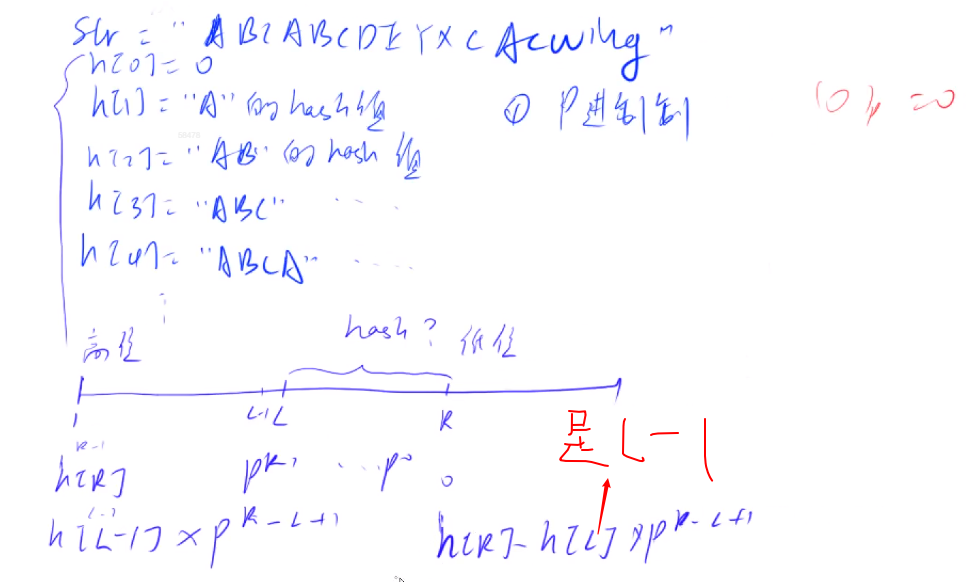 Str = "ABCABCDEYXCAcwing"
h[0] = 0
h[1] = "A" 的 hash 值
① P进制制
(0)p = 0
h[2] = "AB" 的 hash 值
h[3] = "ABC" ....
h[4] = "ABCA" ....
高位
hash? 低位
1 L-1 L R
是L-1
R-1
h[R] p ... p⁰ 0
L-1
h[L-1] × p^{R-L+1} h[R] - h[L] × p^{R-L+1}